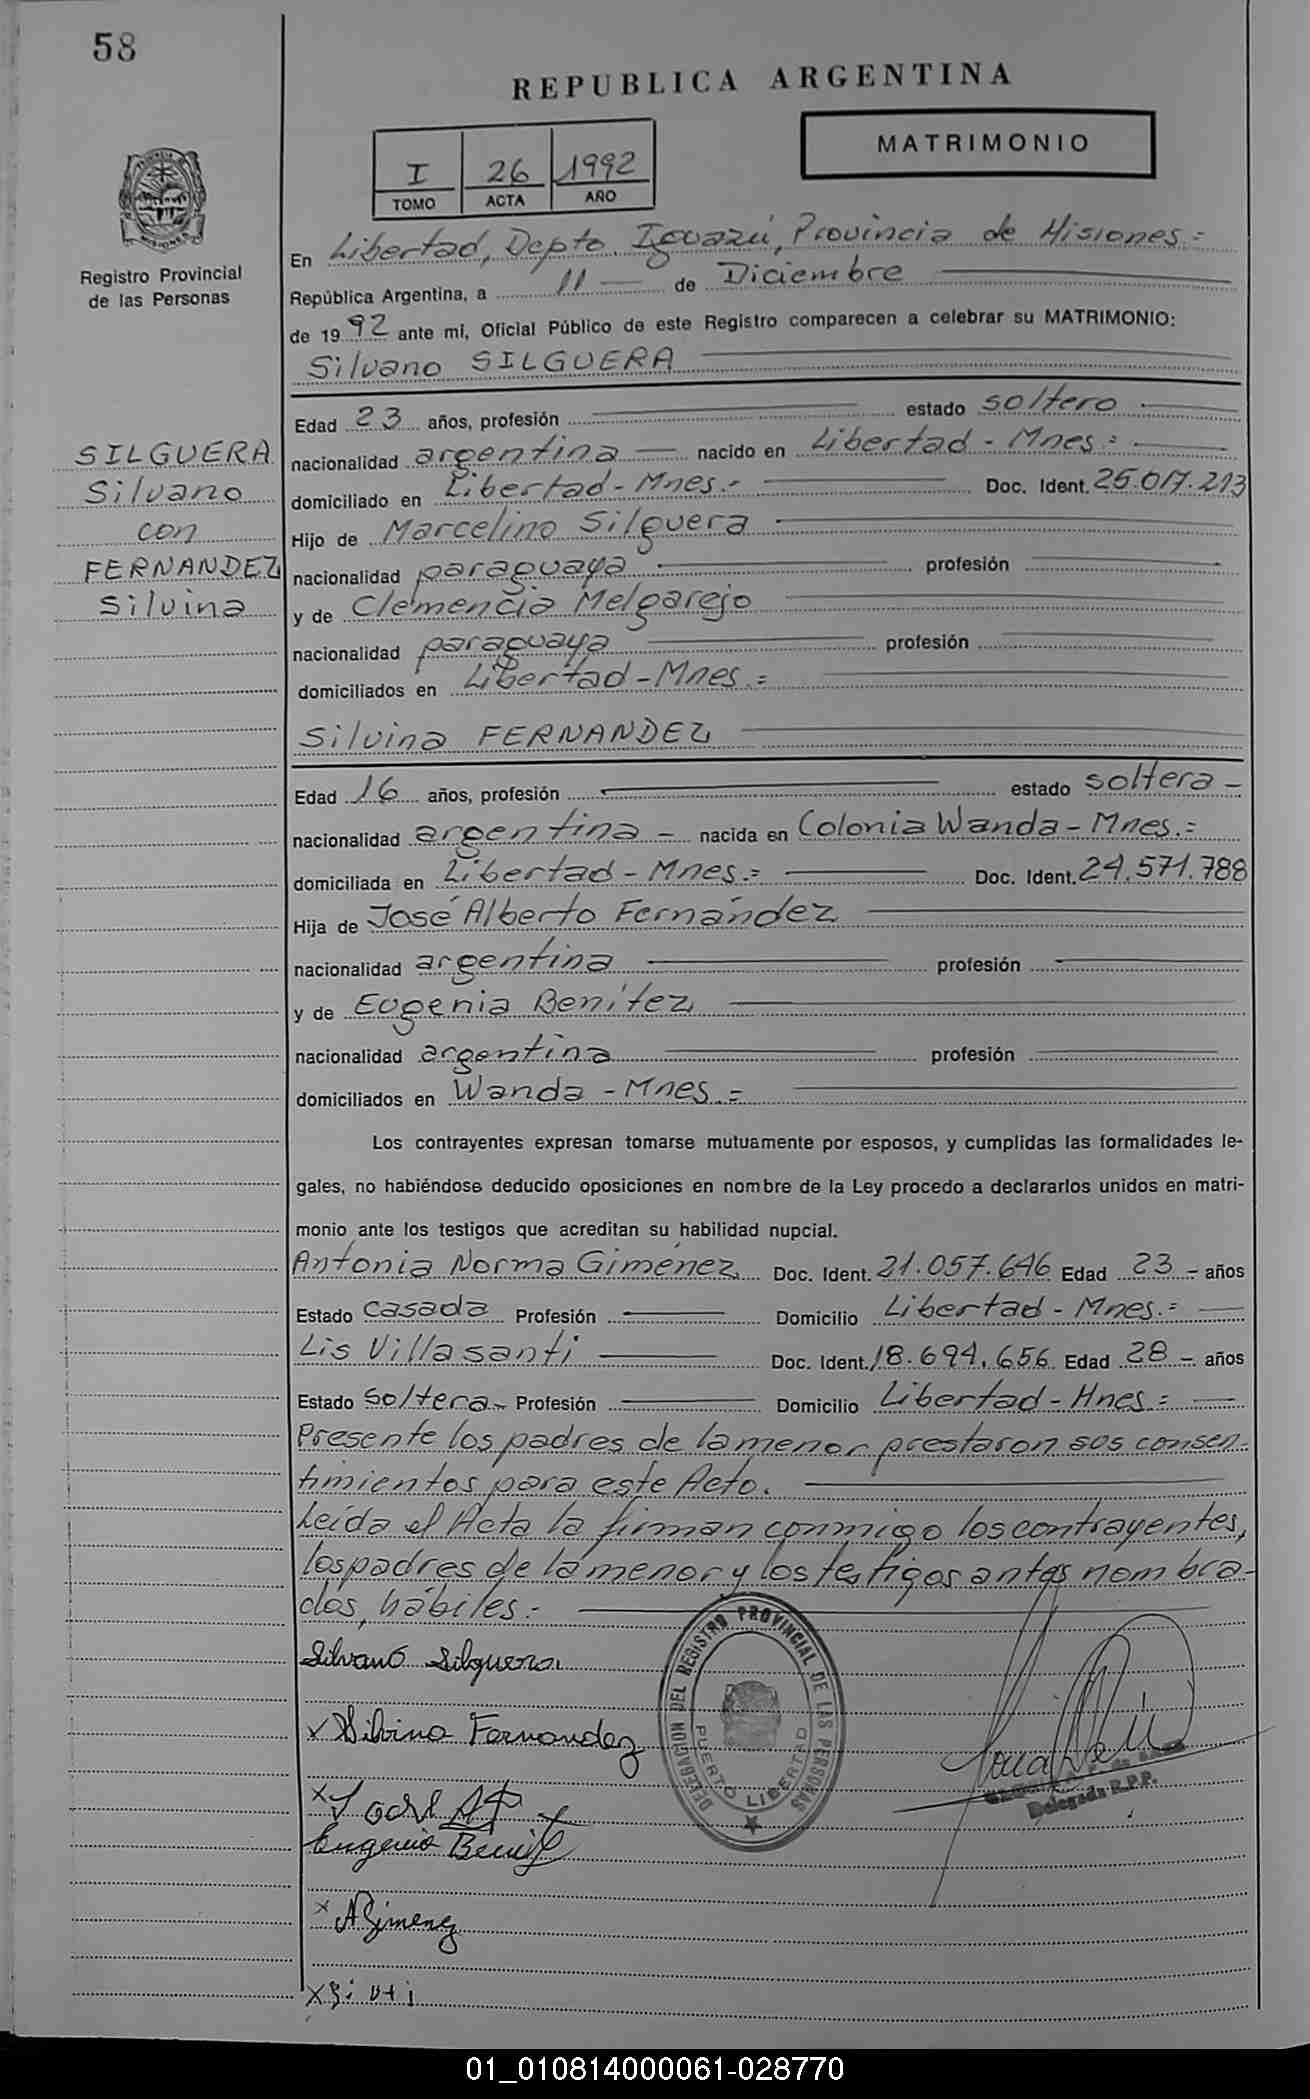 58
REPUBLICA ARGENTINA
MATRIMONIO
I 26 1992
TOMO ACTA AÑO
PROVINCIA DE MISIONES
Registro Provincial
de las Personas
En Libertad, Depto. Iguazú, Provincia de Misiones.=
República Argentina, a 11 — de Diciembre
de 1992 ante mi, Oficial Público de este Registro comparecen a celebrar su MATRIMONIO:
Silvano SILGUERA
Edad 23 años, profesión estado soltero
SILGUERA
Silvano
con
FERNANDEZ
Silvina
nacionalidad argentina nacido en Libertad - Mnes.=
domiciliado en Libertad - Mnes.- Doc. Ident. 25.017.213
Hijo de Marcelino Silguera
nacionalidad paraguaya profesión
y de Clemencia Melgarejo
nacionalidad paraguaya profesión
domiciliados en Libertad - Mnes.=
Silvina FERNANDEZ
Edad 16 años, profesión estado soltera -
nacionalidad argentina - nacida en Colonia Wanda - Mnes.=
domiciliada en Libertad - Mnes.= Doc. Ident. 24.571.788
Hija de José Alberto Fernández
nacionalidad argentina profesión
y de Eugenia Benítez
nacionalidad argentina profesión
domiciliados en Wanda - Mnes.=
Los contrayentes expresan tomarse mutuamente por esposos, y cumplidas las formalidades le-
gales, no habiéndose deducido oposiciones en nombre de la Ley procedo a declararlos unidos en matri-
monio ante los testigos que acreditan su habilidad nupcial.
Antonia Norma Giménez Doc. Ident. 21.057.646 Edad 23 - años
Estado casada Profesión Domicilio Libertad - Mnes.=
Lis Villasanti Doc. Ident. 18.694.656 Edad 28 - años
Estado soltera - Profesión Domicilio Libertad - Mnes.=
Presente los padres de la menor prestaron sus consen-
timientos para este Acto.
Leída el Acta la firman conmigo los contrayentes,
los padres de la menor y los testigos antes nombra-
dos, hábiles.-
Silvano Silguera
x Silvina Fernandez
DELEGACION DEL REGISTRO PROVINCIAL DE LAS PERSONAS
PUERTO LIBERTAD
Delegada R.P.P.
x José
Eugenia Benitez
x A Gimenez
01_010814000061-028770